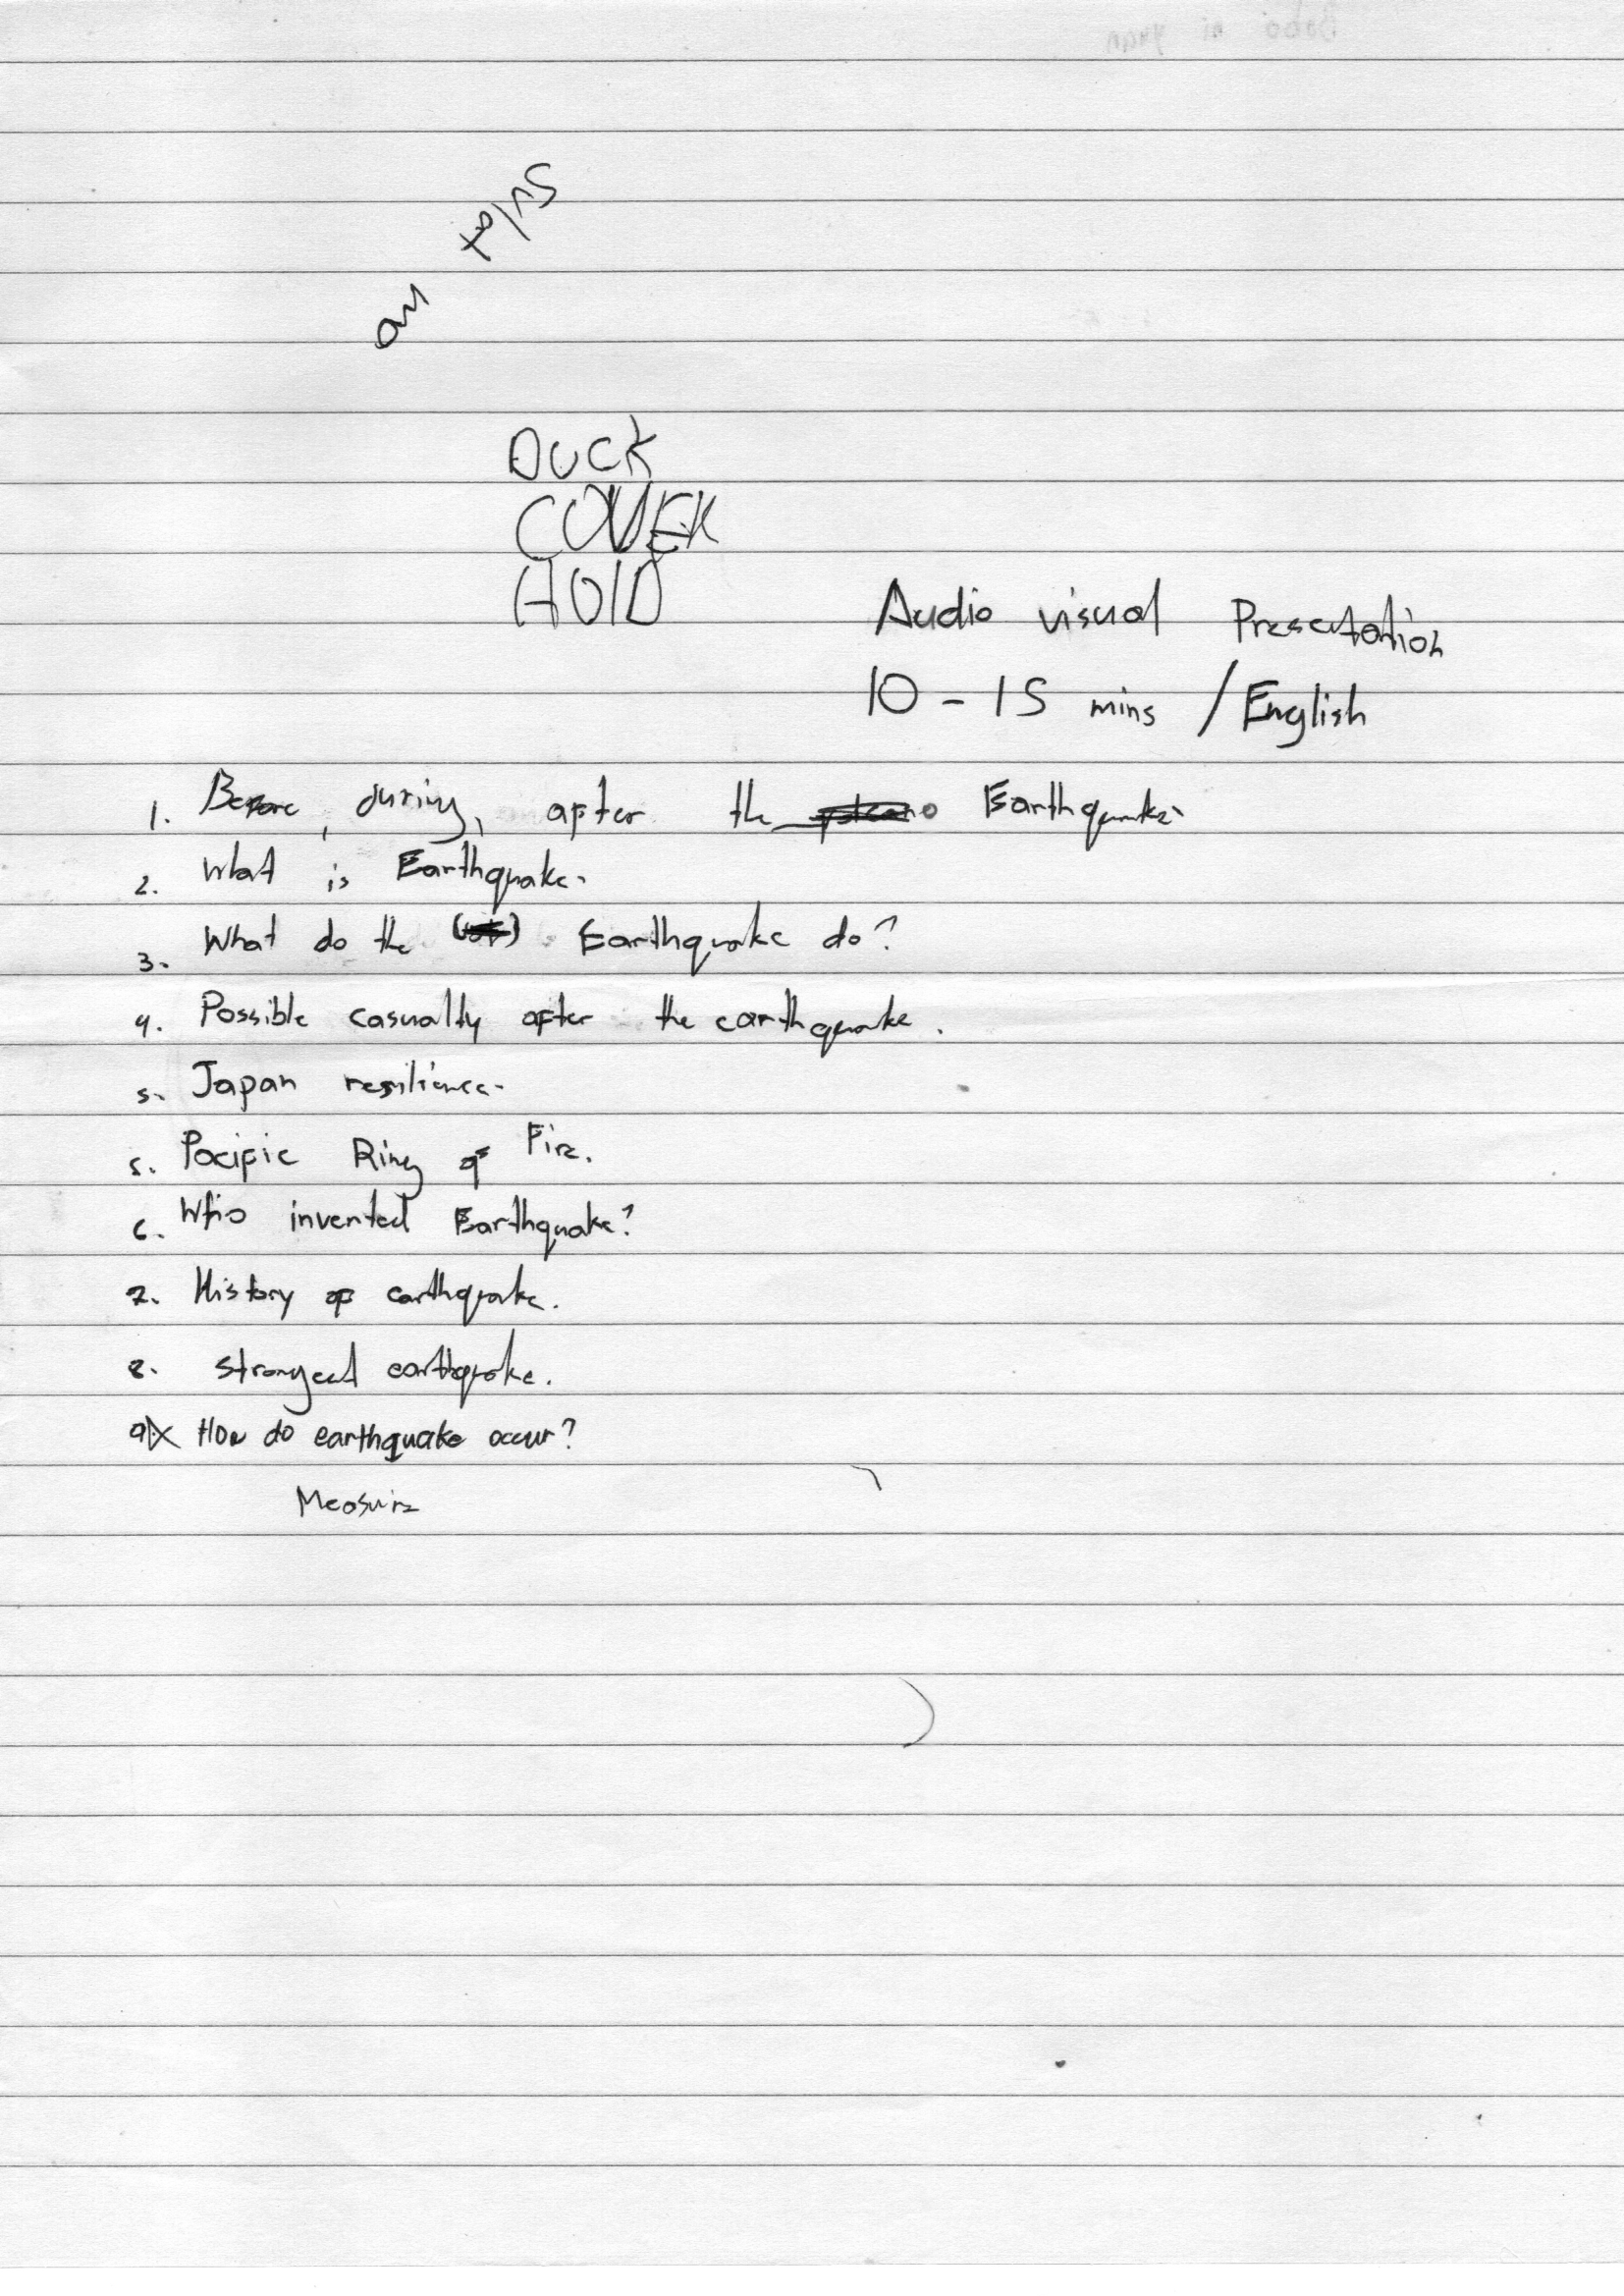 DUCK
COVER
HOLD
Audio visual Presentation
10 - 15 mins / English
1. Before, during, after the Earthquake.
2. What is Earthquake.
3. What do the Earthquake do?
4. Possible casualty after the earthquake.
5. Japan resilience.
5. Pacific Ring of Fire.
6. Who invented Earthquake?
7. History of earthquake.
8. strongest earthquake.
9. How do earthquake occur?
Measure